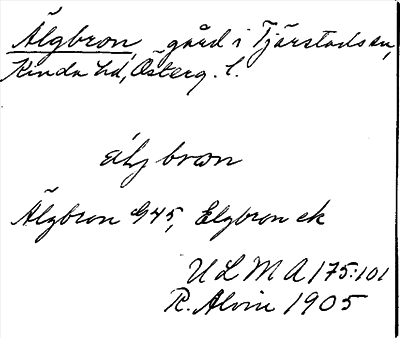 Älgbron, gård i Tjärstads sn,
Kinda hd, Österg. l.
älj bron
Älgbron G45, Elgbron ek
ULMA 175:101
R. Alvin 1905